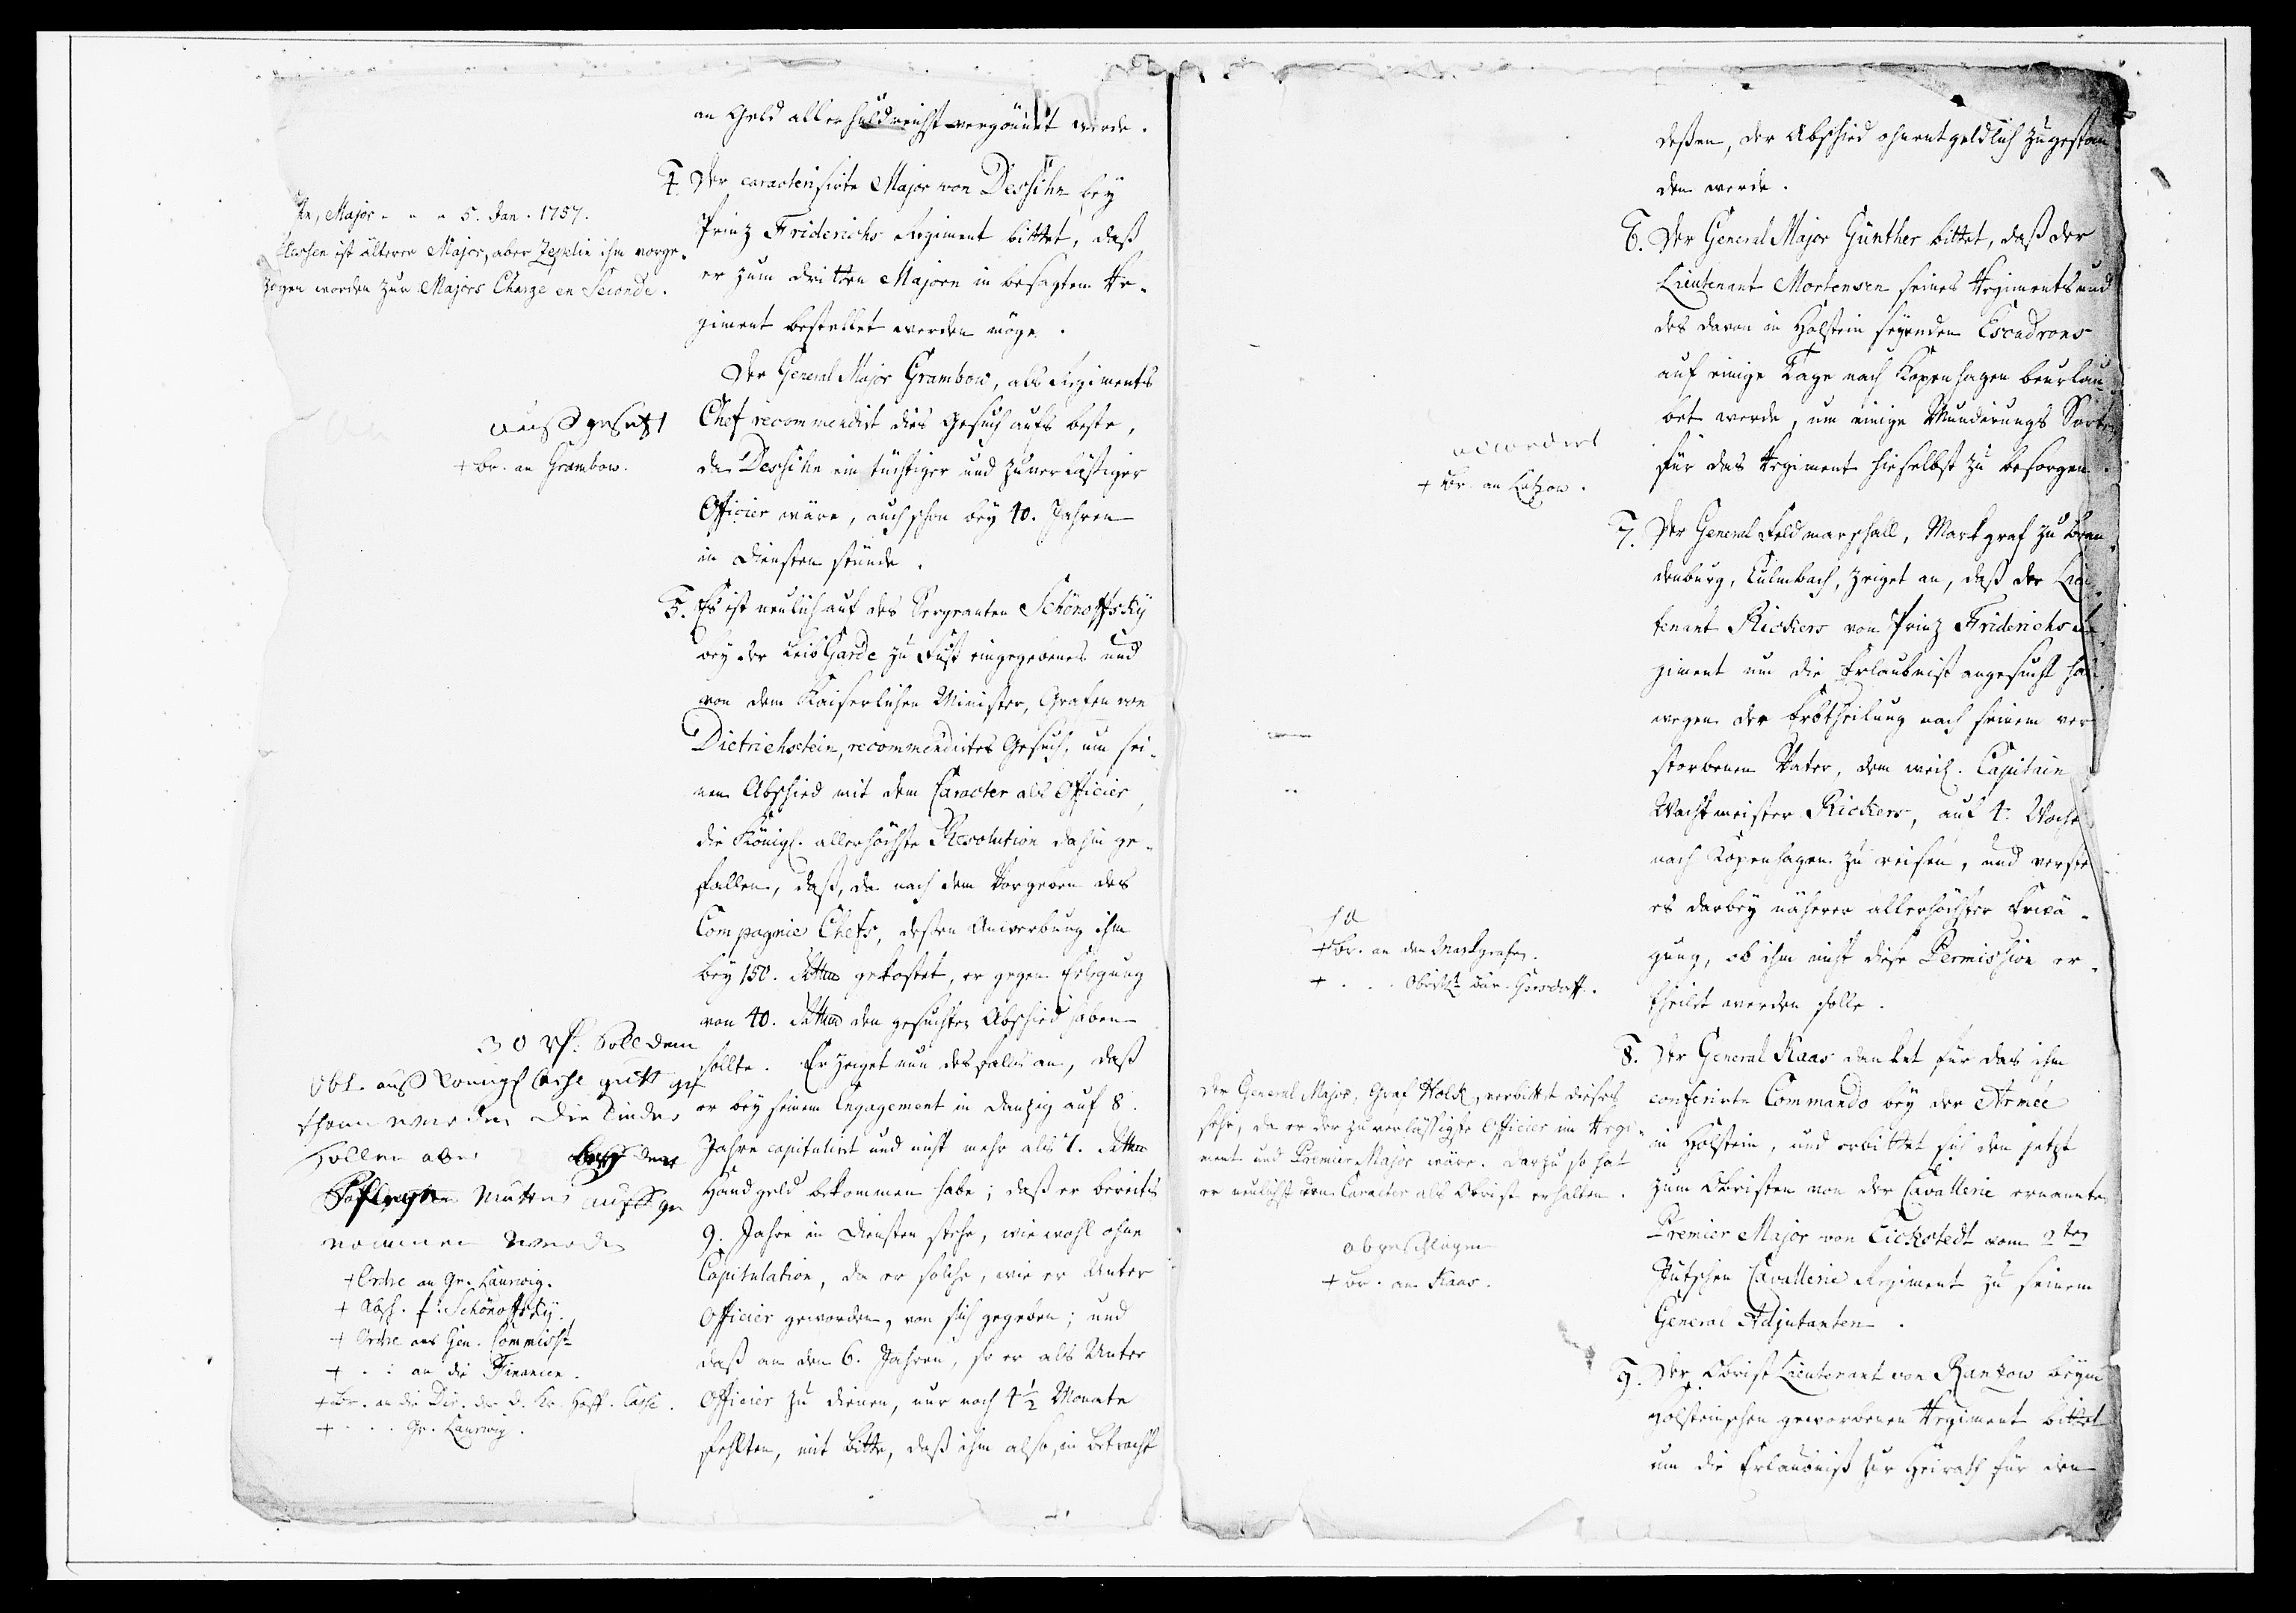 an Geld allerhuldreichst vergönnet werde.
4. Der caracterisirte Major von Dessihn bey
Prinz Friderichs Regiment bittet, daß
er zum dritten Majorn in besagtem Re-
giment bestellet werden möge.
Der General Major Grambow, als Regiments
Chef recommendirt dies Gesuch aufs beste,
da Dessihn ein tüchtiger und zuverläßiger
Officier wäre, auch schon bey 40. Jahren
in Diensten stünde.
5. Es ist neulich auf des Sergeanten Schönoffsky
bey der Leib Garde zu Fuß eingegebenes und
von dem Kaiserlichen Minister, Grafen von
Dietrichstein, recommendirtes Gesuch, um sei-
nen Abschied mit dem Caracter als Officier,
die Königl. allerhöchste Resolution dahin ge-
fallen, daß, da nach dem Vorgeben des
Compagnie Chefs, deßen Anwerbung ihm
bey 150. Rthlr gekostet, er gegen Erlegung
von 40. Rthlr den gesuchten Abschied haben
sollte. Er zeiget nun desfalls an, daß
er bey seinem Engagement in Danzig auf 8.
Jahre capitulirt und nicht mehr als 7. Rthlr
Handgeld bekommen habe; daß er bereits
9. Jahre in Diensten stehe, wiewohl ohne
Capitulation, da er solche, wie er Unter
Officier geworden, von sich gegeben; und
daß an den 6. Jahren, so er als Unter
Officier zu dienen, nur noch 4 1/2 Monate
fehlten, mit Bitte, daß ihm also, in Betracht
Major - - - 5. Jan. 1757.
ist älterer Major, aber Zepelin ihm vorge-
zogen worden zur Majors Charge en Seconde.
außgesetzt
+ Br. an Grambow.
30 soll dem
auß gutt ge
than werden die Kinder
sollen aber bey der
Mutter auffge
nommen werde
+ Ordre an Gr. Laurwig.
+ Absch. f. Schönoffsky.
+ Ordre ans Gen. Commiss.
+ . : an die Financen.
+ Br. an die Dir. der
+ . . . Gr. Laurwig.
deßen, der Abschied ohnentgeldlich zugestan-
den werde.
6. Der General Major Günther bittet, daß der
Lieutenant Mortensen seines Regiments und
des davon in Holstein seyenden Escadrons
auf einige Tage nach Kopenhagen beurlau-
bet werde, um einige Mundirungs Sorten
für das Regiment hieselbst zu besorgen.
7. Der General Feldmarschall, Markgraf zu Bran-
denburg, Culmbach, zeiget an, daß der Lieu-
tenant Rickers von Prinz Friderichs Re-
giment um die Erlaubniß angesucht habe,
wegen der Erbtheilung nach seinem ver-
storbenen Vater, dem weil. Capitain
Wachtmeister Rickers, auf 4. Wochen
nach Kopenhagen zu reisen, und
es darbey näherer allerhöchster Erwä-
gung, ob ihm nicht diese Permission er-
theilet werden solle.
8. Der General Kaas danket für das ihm
conferirte Commando bey der Armée
in Holstein, und erbittet sich den jetzt
zum Obristen von der Cavallerie ernannten
Premier Major von Eickstedt vom 2ten
Jütschen Cavallerie Regiment zu seinem
General Adjutanten.
9. Der Obrist Lieutenant von Ranzow beym
Holsteinschen geworbenen Regiment bittet
um die Erlaubniß zur Heirath für den
accordirt
+ Br. an Lützow.
ja
+ Br. an den Markgrafen.
+ . . . Gersdorff.
Der General Major, Graf Holck, verbittet dieses
sehr, da er der zuverläßigste Officier im Regi-
ment und Premier Major wäre. Darzu so hat
er neulichst den Caracter als Obrist erhalten.
abgeschlagen
+ Br. an Kaas.